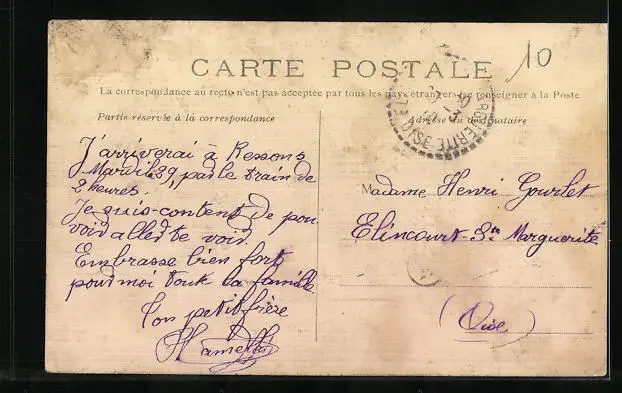 10
CARTE POSTALE
La correspondance au recto n'est pas acceptée par tous les pays étrangers (se renseigner à la Poste
Partie réservée à la correspondance
Adresse du destinataire
J'arriverai à Ressons
Mardi 29, par le train de
2 heures.
Je suis content de pou
voir aller te voir.
Embrasse bien fort
pour moi toute la famille
Ton petit frère
Madame Henri Gourlet
Elincourt-Ste Marguerite
(Oise)